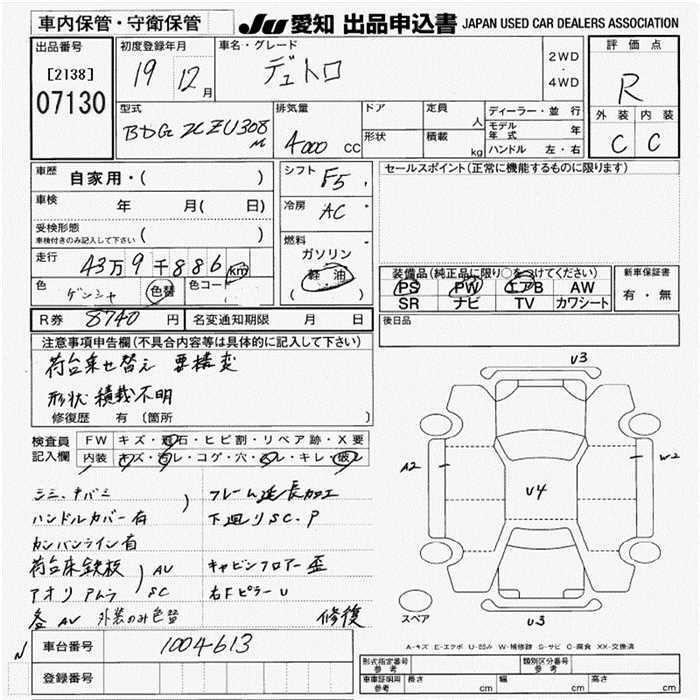 車内保管・守衛保管
JU 愛知 出品申込書 JAPAN USED CAR DEALERS ASSOCIATION
出品番号
[2138]
07130
初度登録年月
19 12月
車名・グレード
デュトロ
2WD
・
4WD
評価点
R
外装 内装
C C
型式
BDG XZU308M
排気量
4000 cc
ドア
形状
定員 人
積載 kg
ディーラー・並行
モデル年式 年
ハンドル 左・右
車歴 自家用・( )
車検 年 月( 日)
受検形態
車検付きのみ記入して下さい ( )
走行 43万9千886 km
色 ゲンシャ 色替 色コード
シフト F5
冷房 AC
燃料
ガソリン
軽油
( )
セールスポイント(正常に機能するものに限ります)
装備品(純正品に限り○をつけてください)
PS PW エアB AW
SR ナビ TV カワシート
新車保証書
有・無
R券 8740 円 名変通知期限 月 日
後日品
注意事項申告欄(不具合内容等は具体的に記入して下さい)
荷台乗せ替え 要構変
形状 積載不明
修復歴 有 〔箇所
検査員記入欄
FW キズ・飛石・ヒビ割・リペア跡・X要
内装 キズ・汚レ・コゲ・穴・スレ・キレ・破レ
シミ、
ハンドルカバー有
カンバンライン有
荷台床鉄板 AV
アオリ SC
各AV 外装のみ色替
フレーム延長加工
下廻りSC.P
キャビンフロアー歪
右Fピラー U
修復
U3
A2
W2
U4
U3
スペア
A-キズ E-エクボ U-凹み W-補修跡 S-サビ C-腐食 XX-交換済
N
車台番号 1004613
登録番号
形式指定番号 参考
類別区分番号 参考
車車証明用 参考
長さ cm
幅 cm
高さ cm